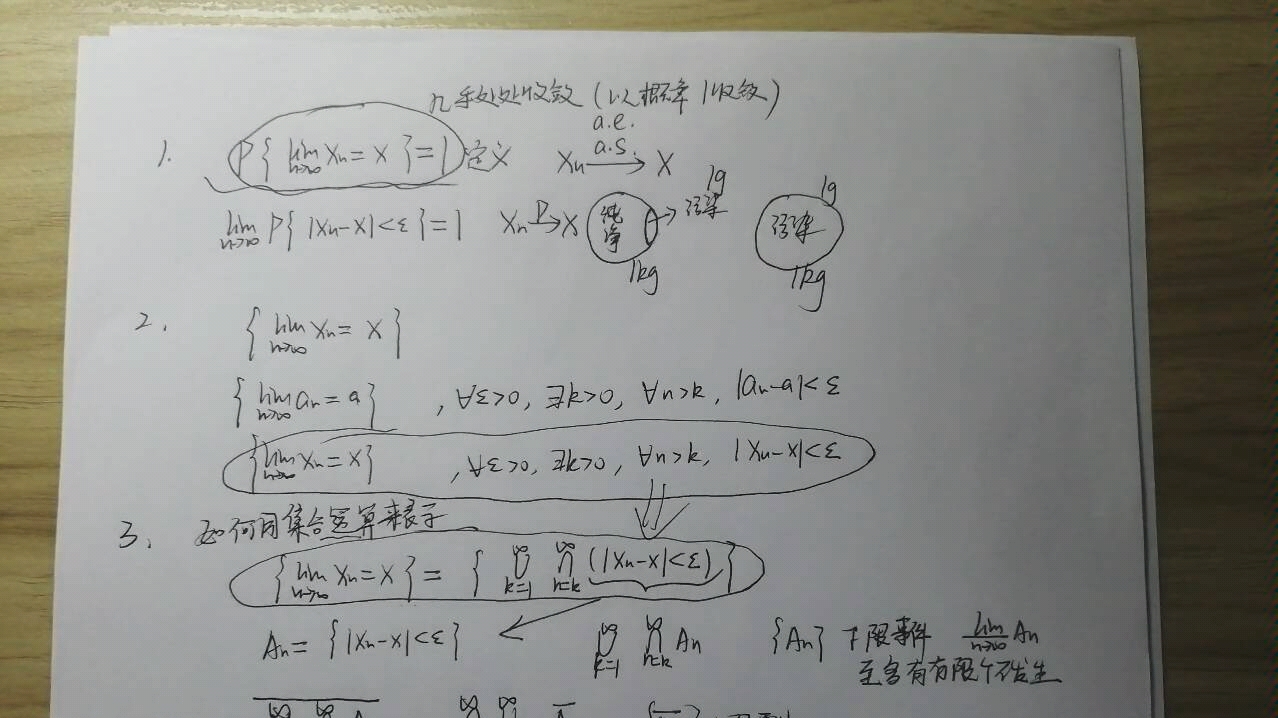 几乎处处收敛（以概率1收敛）
1. P{ lim n→∞ Xn = X } = 1 定义 Xn a.e. a.s. → X
lim n→∞ P{ |Xn-X|<ε } = 1 Xn P→ X 纯净 → 污染 1g 1kg 污染 1g 1kg
2. { lim n→∞ Xn = X }
{ lim n→∞ an = a } , ∀ε>0, ∃k>0, ∀n>k, |an-a|<ε
{ lim n→∞ Xn = X } , ∀ε>0, ∃k>0, ∀n>k, |Xn-X|<ε
3. 如何用集合运算来表示
{ lim n→∞ Xn = X } = { ∞∪k=1 ∞∩n=k (|Xn-X|<ε) }
An = { |Xn-X|<ε } ∞∪k=1 ∞∩n=k An {An} 下限事件 lim n→∞ An
至多有有限个不发生